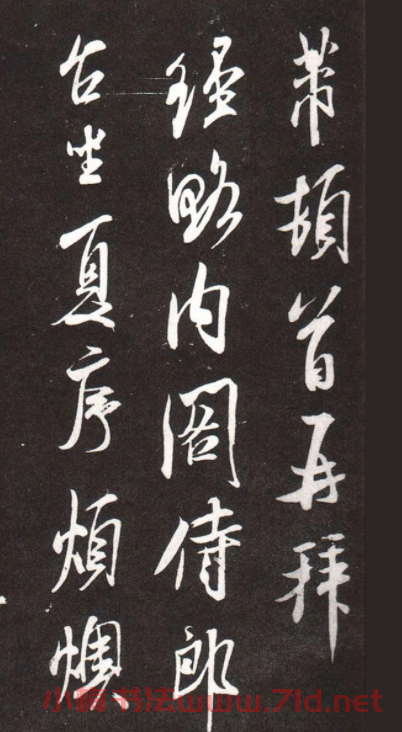 芾頓首再拜
經略内閣侍郎
台坐夏序煩燠
书法www.7ld.net